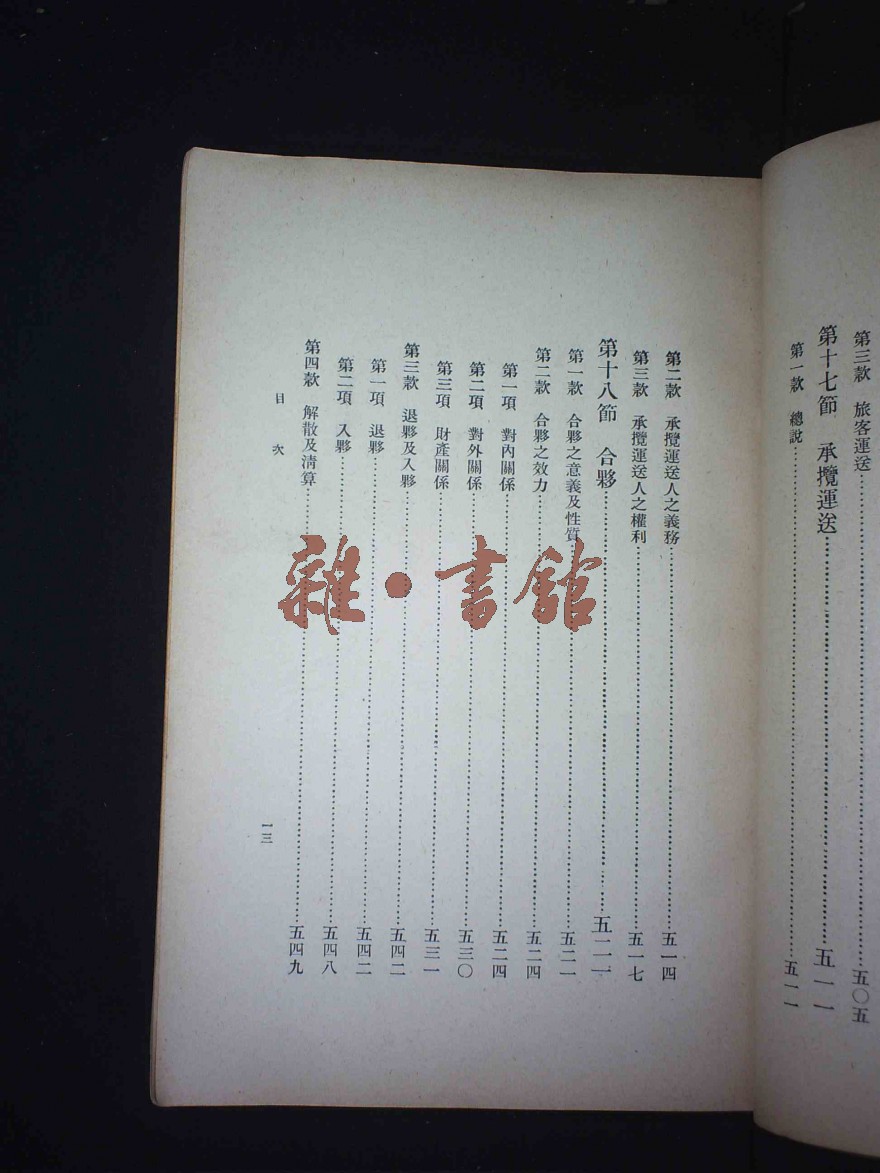 第三款　旅客運送……五〇五
第十七節　承攬運送……五一一
第一款　總說……五一一
第二款　承攬運送人之義務……五一四
第三款　承攬運送人之權利……五一七
第十八節　合夥……五二一
第一款　合夥之意義及性質……五二一
第二款　合夥之效力……五二四
第一項　對內關係……五二四
第二項　對外關係……五三〇
第三項　財產關係……五三一
第三款　退夥及入夥……五四二
第一項　退夥……五四二
第二項　入夥……五四八
第四款　解散及清算……五四九
目次
一三
雜·書館